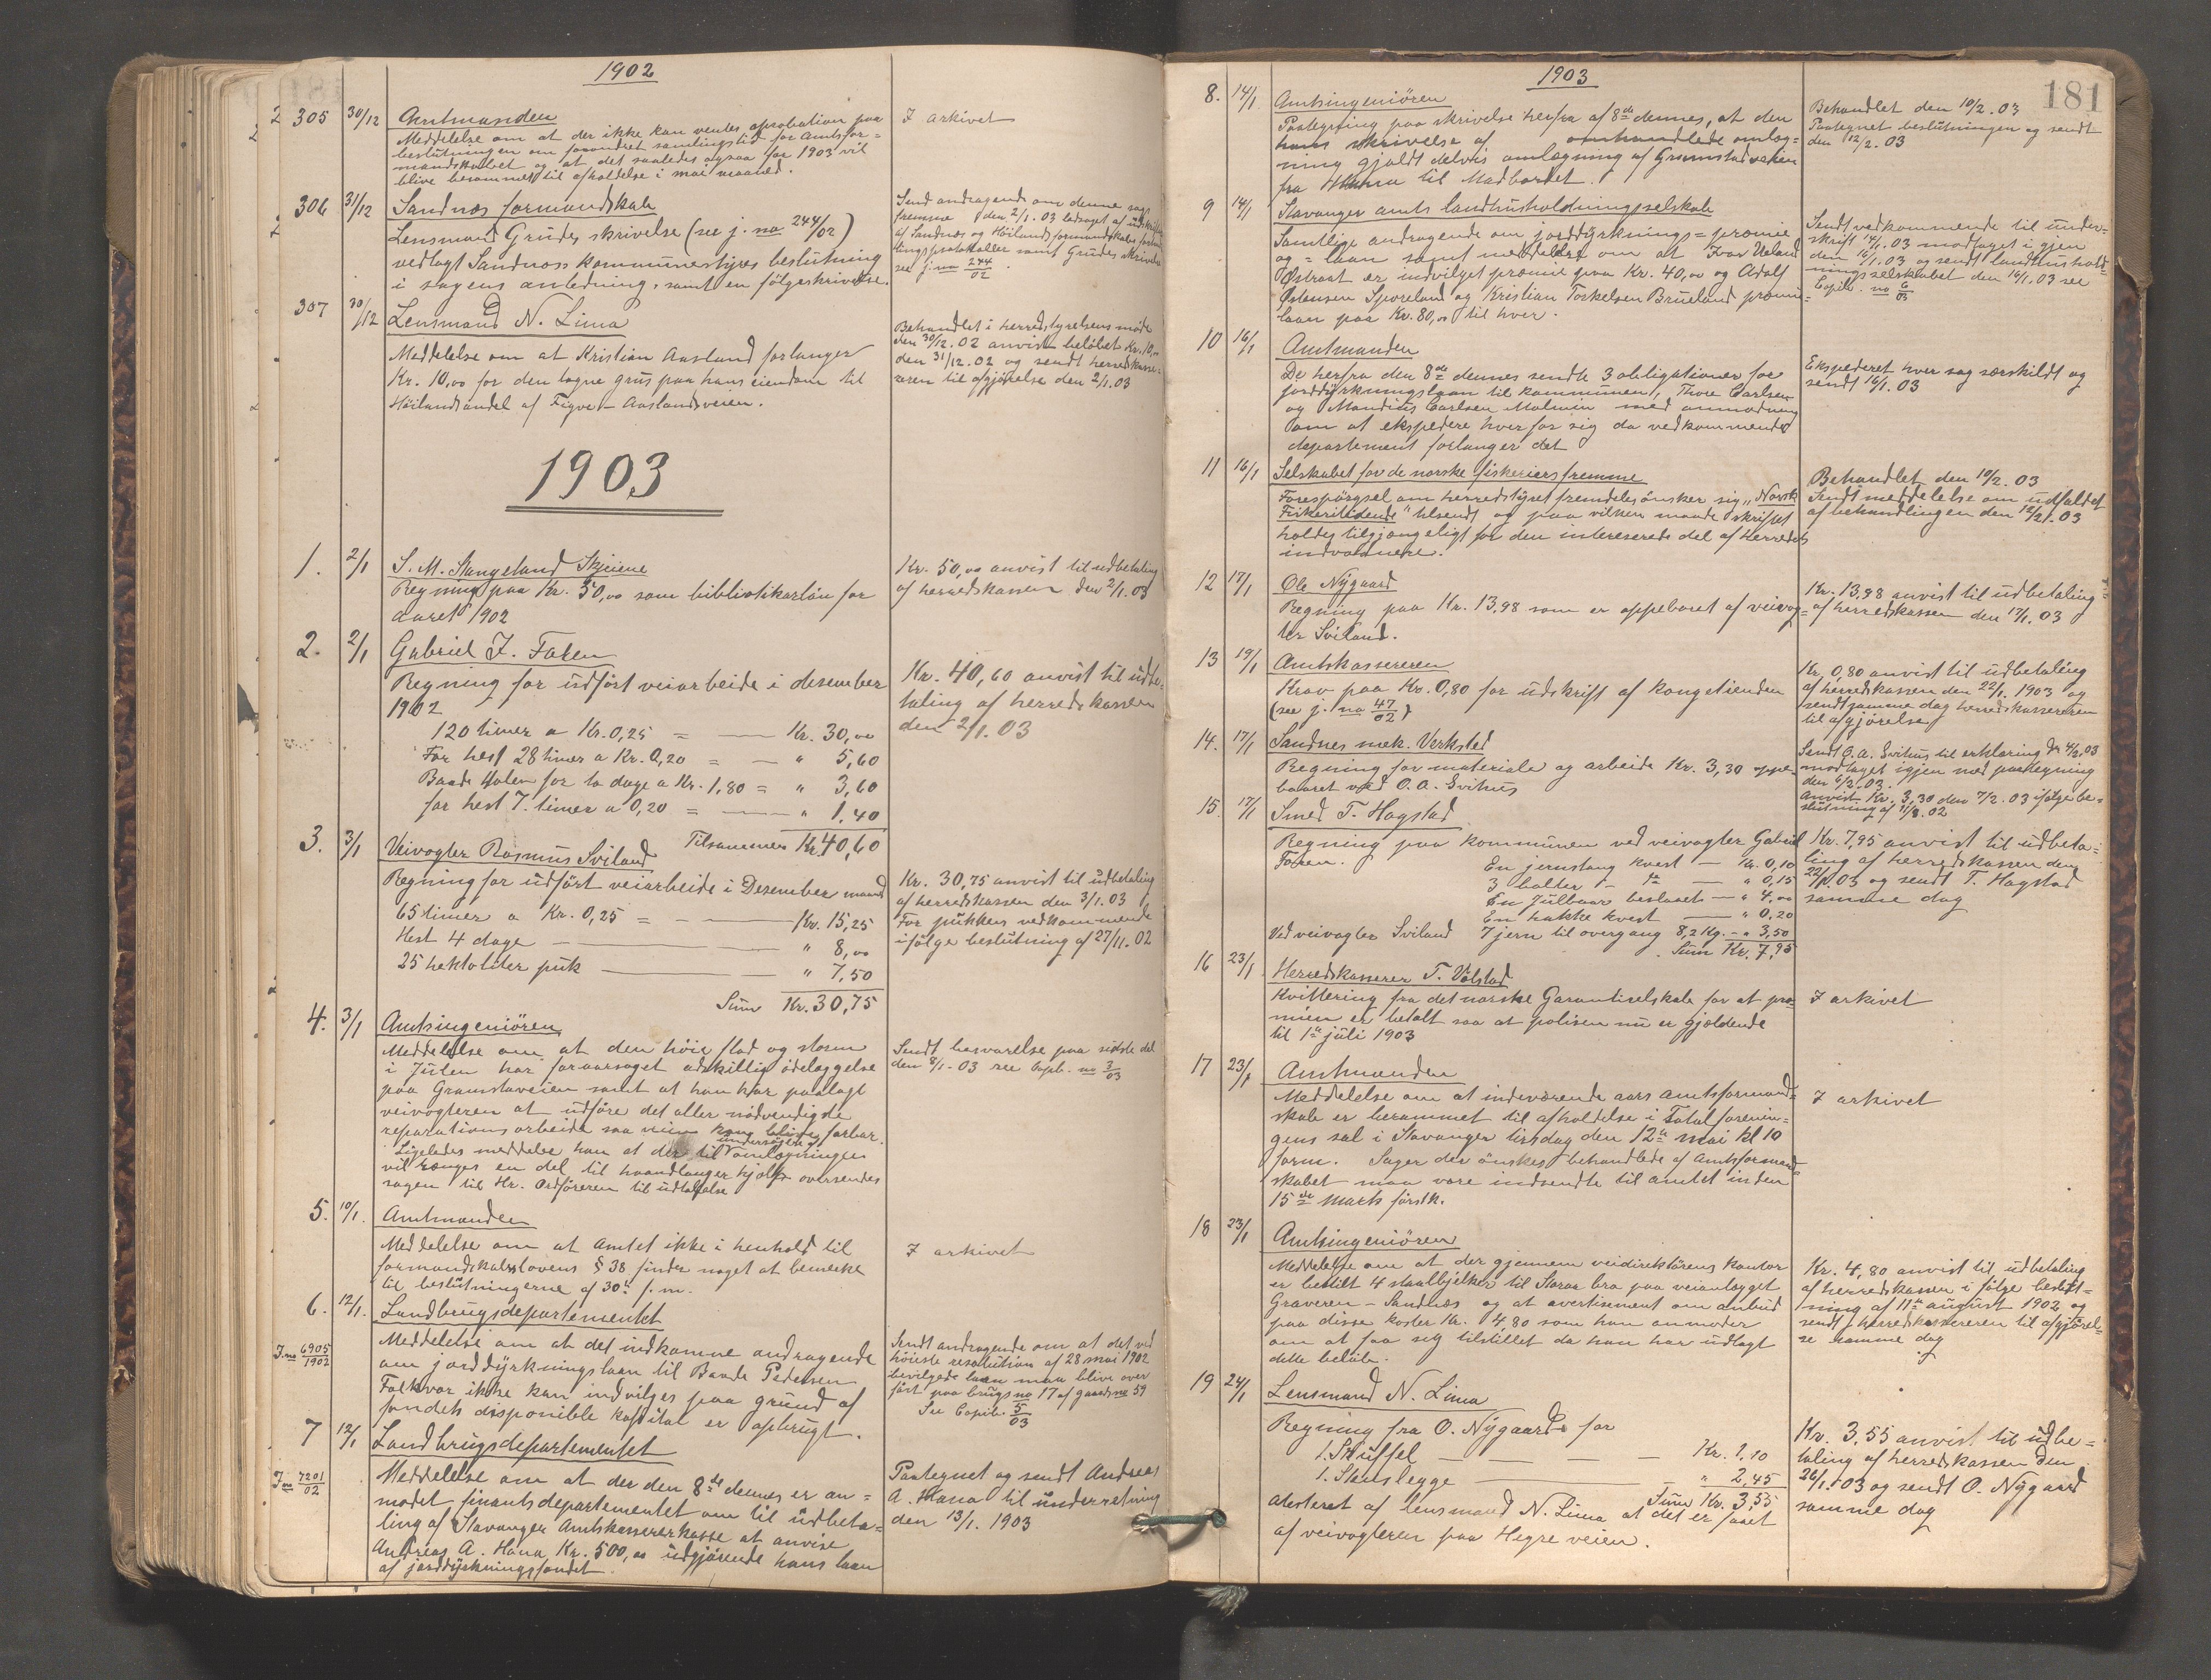 1902
305 30/12 Amtmanden
Meddelelse om at der ikke kan ventes aprobation paa
beslutningen om forandret samlingstid for Amtsfor=
mandskabet og at det saaledes ogsaa for 1903 vil
blive berammet til afholdelse i mai maaned.
I arkivet
306 31/12 Sandnes formandskab
Lensmand Grudes skrivelse (see j. no 244/02)
vedlagt Sandnoss kommunestyres beslutning
i sagens anledning, samt en følgeskrivelse.
Send andragende om denne sags
fremme den 2/1. 03 ledsaget af udskrifter
af Sandnæs og Höilands formandskabs forhand
lingsprotokoller samt Grudes skrivelse
see j. no 244/02.
307 30/12 Lensmand N. Lima
Meddelelse om at Kristian Aasland forlanger
Kr. 10,00 for den tagne grus paa hans eiendom til
Höilands andel af Figve - Aaslandsveien.
Behandlet i herredstyrelsens møde
den 30/12. 02 anvist beløbet Kr. 10,00
den 31/12. 02 og sendt herredskasse-
reren til afgjörelse den 2/1. 03
1903
1. 2/1 S. M. Stangeland Skjæine
Regning paa Kr. 50,00 som bibliotikarløn for
aaret 1902
Kr. 50,00 anvist til udbetaling
af herredskassen den 2/1. 03
2. 2/1 Gabriel I. Foten
Regning for udfört veiarbeide i desember
1902
120 timer a Kr. 0,25 = — Kr. 30,00
For hest 28 timer a Kr. 0,20 = — " 5,60
Baade Halen for to dage a Kr. 1,80 = " 3,60
for hest 7. timer a 0,20 = — " 1,40
Tilsammen Kr. 40,60
Kr. 40,60 anvist til udbe-
taling af herredskassen
den 2/1. 03
3. 3/1 Veivogter Rasmus Sviland
Regning for udfört veiarbeide i Desember maaned
65 timer a Kr. 0,25 = — Kr. 15,25
Hest 4 dage — " 8,00
25 hektoliter puk — " 7,50
Sum Kr. 30,75
Kr. 30,75 anvist til udbetaling
af herredskassen den 3/1. 03
For pukkens vedkommende
ifölge beslutning af 27/11. 02
4. 3/1 Amtsingeniören
Meddelelse om at den höie flod og storm
i Julen har foraarsaget adskillig ödelæggelse
paa Gramstaveien samt at han har paalagt
veivogteren at udföre det aller nödvendigste
reparationsarbeide saa veien kan blive farbar.
Ligeledes meddeler han at der til undersögen af omlægningen
vil trænges en del til haandlanger hjælp oversendes
sagen til Hr. Ordföreren til udtalelse
Sendt besvarelse paa sidste del
den 8/1. 03 see Copib. no 3/03
5. 10/1. Amtmanden
Meddelelse om at Amtet ikke i henhold til
formandskabslovens § 38 finder noget at bemerke
til beslutningerne af 30te f. m.
I arkivet
6. 12/1. Landbrugsdepartementet
J. no 6905/1902
Meddelelse om at det indkomne andragende
om jorddyrkningslaan til Baade Pedersen
Folkvor ikke kan indvilges paa grund af
fondets disponible kapital er opbrugt.
Sendt andragende om at det ved
höieste resolution af 28 mai 1902
bevilgede laan maa blive over
fört paa brugs no 17 af gaards no 59
See Copib. 5/03
7 12/1 Landbrugsdepartementet
J no 7201/02
Meddelelse om at der den 8de dennes er an=
modet finantsdepartementet om til udbeta=
ling af Stavanger Amtskassererkasse at anvise
Andreas A. Hana Kr. 500,00 udgjörende hans laan
af jorddyrkningsfondet.
Paategnet og sendt Andreas
A. Hana til underretning
den 13/1. 1903
181
1903
8. 14/1 Amtsingeniören
Paategning paa skrivelse herfra af 8de dennes, at den
hans skrivelse af omhandlede omlæg=
ning gjaldt delvis omlægning af Gramstadveien
fra Hana til Madbordet.
Behandlet den 10/2. 03
Paategnet beslutningen og sendt
den 12/2. 03
9 14/1 Stavanger amts landhusholdningsselskab
Samtlige andragende om jorddyrknings= præmie
og = laan samt meddelelse om at Ivar Ueland
Østraat er indvilget præmie paa Kr. 40,00 og Adolf
Østensen Sporeland og Kristian Torkelsen Brueland præmie=
laan paa Kr. 80,00 til hver.
Sendt vedkommende til under=
skrift 14/1. 03 modtaget igjen
den 16/1. 03 og sendt landhushold=
ningsselskabet den 16/1. 03 see
Copib. no 6/03
10 16/1 Amtmanden
De herfra den 8de dennes sendte 3 obligationer for
jorddyrkningslaan til kommunen, Thore Carlsen
og Mandius Carlsen Malmin med anmodning
om at ekspedere hver for sig da vedkommende
departement forlanger det
Ekspederet hver sag særskildt og
sendt 16/1. 03
11 16/1 Selskabet for de norske fiskeriers fremme
Forespörgsel om herredstyret fremdeles ønsker sig "Norsk
Fiskeritidende" tilsendt og paa vilken maade skriftet
holdes tilgjængeligt for den interesserede del af Herredets
indvaanere.
Behandlet den 10/2. 03
Sendt meddelelse om udfaldet
af behandlingen den 12/2. 03
12 17/1 Ole Nygaard
Regning paa Kr. 13,98 som er oppebaaret af veivog=
ter Sviland.
Kr. 13,98 anvist til udbetaling
af herredskassen den 17/1. 03
13 19/1 Amtskassereren
Krav paa Kr. 0,80 for udskrift af kongetienden
(see j. no 47/02)
Kr. 0,80 anvist til udbetaling
af herredskassen den 22/1. 1903 og
sendt samme dag herredskassereren
til afgjörelse
14. 17/1 Sandnes mek. Verksted
Regning for materiale og arbeide Kr. 3,30 oppe
baaret ved O. A. Svihus
Sendt O. A. Svihus til erklæring den 4/2. 03
modtaget igjen med paategning
den 6/2. 03.
Anvist Kr. 3,30 den 7/2. 03 ifølge be=
slutning af 11/8. 02
15. 17/1 Smed T. Hogstad
Regning paa kommunen ved veivogter Gabriel
Foten.
En jernstang kvest — Kr. 0,10
3 bolter — " 0,15
En Julbaar beslaaet — " 4,00
En hakke kvest — " 0,20
Ved veivogter Sviland 7 jern til overgang 8,2 Kg. — " 3,50
Sum Kr. 7,95
Kr. 7,95 anvist til udbeta=
ling af herredskassen den
22/1. 03 og sendt T. Hogstad
samme dag
16 23/1 Herredskasserer T. Volstad
Kvittering fra det norske Garantiselskab for at præ
mien er betalt saa at polisen nu er gjældende
til 1ste juli 1903
I arkivet
17 23/1 Amtmanden
Meddelelse om at indeværende aars amtsformand=
skab er berammet til afholdelse i Totalforenin=
gens sal i Stavanger tirsdag den 12te mai kl 10
form. Sager der önskes behandlede af Amtsformand=
skabet maa være indsendte til amtet inden
15de Marts förstk.
I arkivet
18 23/1 Amtsingeniören
Meddelelse om at der gjennem veidirektörens kontor
er bestilt 4 staalbjelker til Storaa bro paa veianlægget
Graveren - Sandnes og at avertisement om anbud
paa disse koster Kr. 4,80 som han anmoder
om at faa sig tilstillet da han har udlagt
dette belöb.
Kr. 4,80 anvist til udbetaling
af herredskassen i fölge beslut=
ning af 11te august 1902 og
sendt herredskassereren til afgjörel=
se samme dag
19 24/1 Lensmand N. Lima
Regning fra O. Nygaard for
1. Skuffel — Kr. 1,10
1. Stenslegge — " 2,45
Sum Kr. 3,55
Atesteret af lensmand N. Lima at det er faaet
af veivogteren paa Hegreveien.
Kr. 3,55 anvist til udbe=
taling af herredskassen den
26/1. 03 og sendt O. Nygaard
samme dag